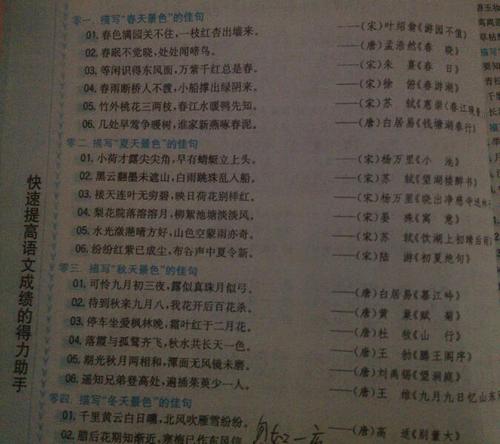 零一 描写"春天景色"的佳句
01. 春色满园关不住，一枝红杏出墙来。 ——(宋)叶绍翁《游园不值》
02. 春眠不觉晓，处处闻啼鸟。 ——(唐)孟浩然《春 晓》
03. 等闲识得东风面，万紫千红总是春。 ——(宋)朱 熹《春 日》
04. 春雨断桥人不渡，小船撑出绿阴来。 ——(宋)徐 俯《春游湖》
05. 竹外桃花三两枝，春江水暖鸭先知。 ——(宋)苏 轼《惠崇〈春江
06. 几处早莺争暖树，谁家新燕啄春泥。 ——(唐)白居易《钱塘湖春行》
零二 描写"夏天景色"的佳句
01. 小荷才露尖尖角，早有蜻蜓立上头。 ——(宋)杨万里《小 池》
02. 黑云翻墨未遮山，白雨跳珠乱入船。 ——(宋)苏 轼《望湖楼醉书》
03. 接天连叶无穷碧，映日荷花别样红。 ——(宋)杨万里《晓出净慈寺送林
04. 梨花院落溶溶月，柳絮池塘淡淡风。 ——(宋)晏 殊《寓 意》
05. 水光潋滟晴方好，山色空蒙雨亦奇。 ——(宋)苏 轼《饮湖上初晴后雨》
06. 纷纷红紫已成尘，布谷声中夏令新。 ——(宋)陆 游《初夏绝句》
零三 描写"秋天景色"的佳句
01. 可怜九月初三夜，露似真珠月似弓。 ——(唐)白居易《暮江吟》
02. 待到秋来九月八，我花开后百花杀。 ——(唐)黄 巢《赋 菊》
03. 停车坐爱枫林晚，霜叶红于二月花。 ——(唐)杜 牧《山 行》
04. 落霞与孤鹜齐飞，秋水共长天一色。 ——(唐)王 勃《滕王阁序》
05. 湖光秋月两相和，潭面无风镜未磨。 ——(唐)刘禹锡《望洞庭》
06. 遥知兄弟登高处，遍插茱萸少一人。 ——(唐)王 维《九月九日忆山东
零四 描写"冬天景色"的佳句
01. 千里黄云白日曛，北风吹雁雪纷纷。 ——(唐)高 适《别董大》
02. 腊后花期知渐近，寒梅已作东风信。
快速提高语文成绩的得力助手